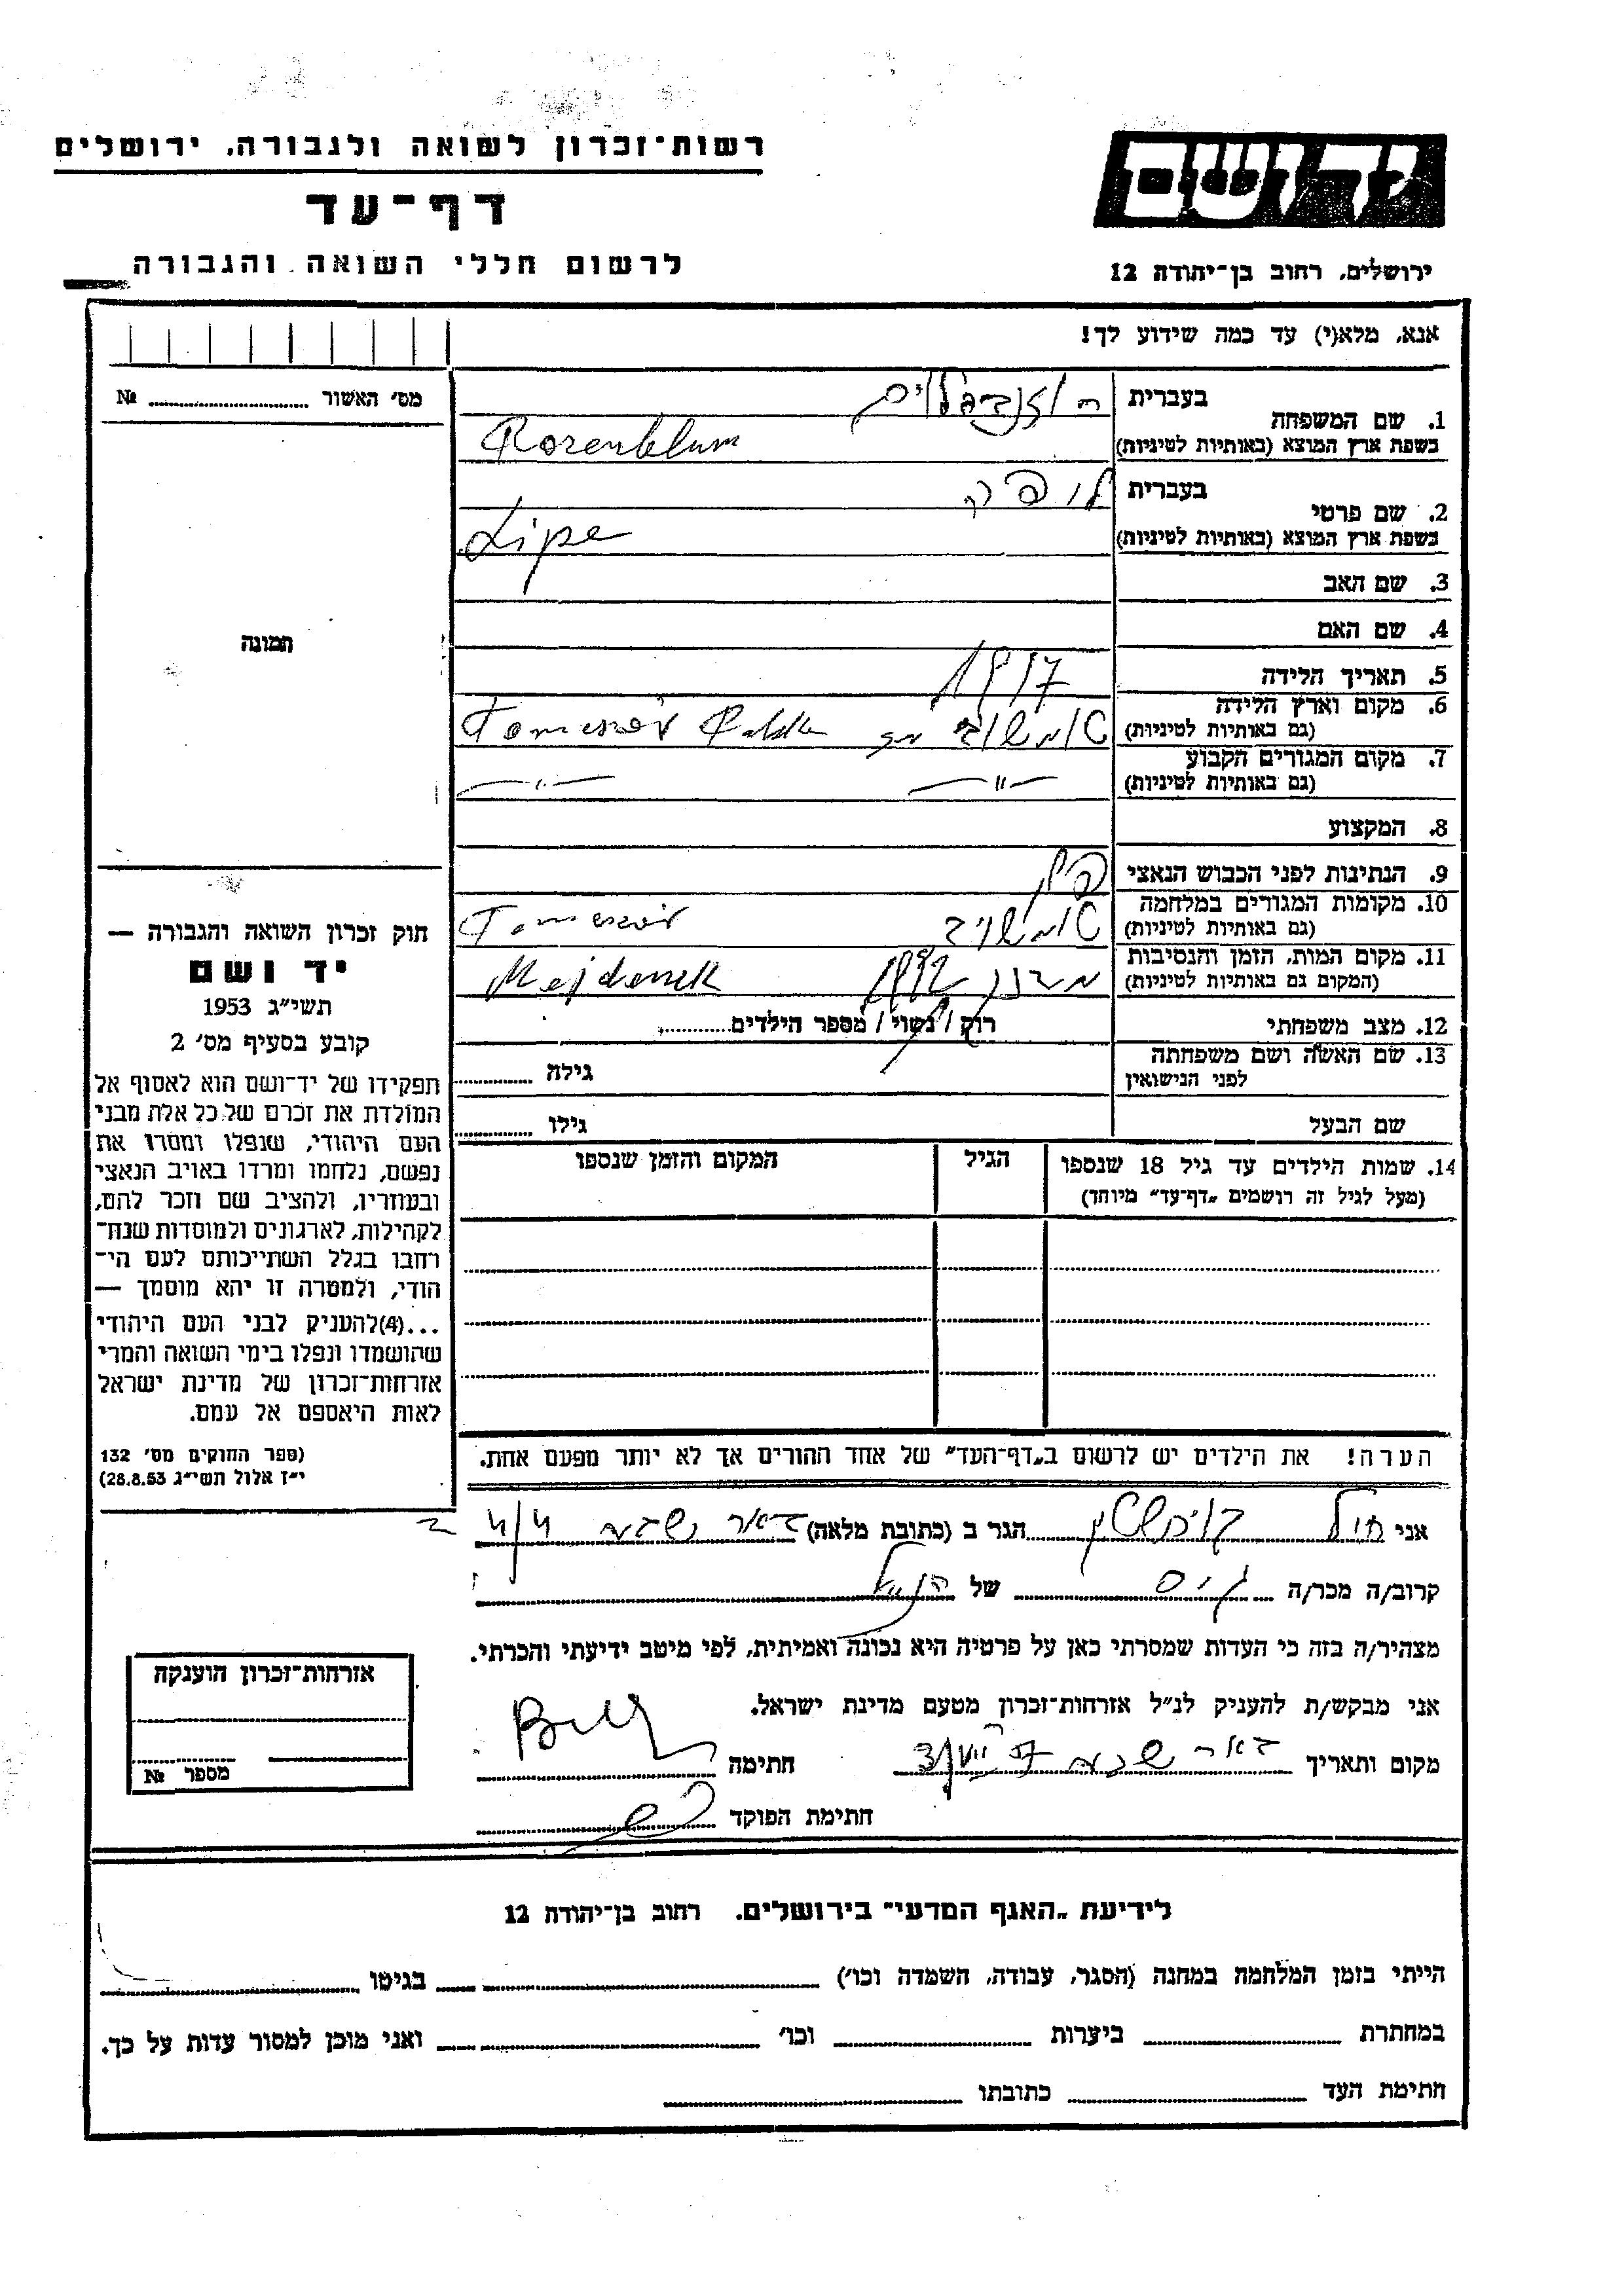 רשות־זכרון לשואה ולגבורה, ירושלים
דף־עד
לרשום חללי השואה והגבורה
יד ושם
ירושלים, רחוב בן־יהודה 12
אנא, מלא(י) עד כמה שידוע לך!
מס׳ האשור № ........
1. שם המשפחה
בעברית רוזנבלום
בשפת ארץ המוצא (באותיות לטיניות) Rozenblum
2. שם פרטי
בעברית ליפה
בשפת ארץ המוצא (באותיות לטיניות) Lipe
3. שם האב
4. שם האם
5. תאריך הלידה 1917
6. מקום וארץ הלידה
(גם באותיות לטיניות) טומשוב Tomaszów
7. מקום המגורים הקבוע
(גם באותיות לטיניות) —״— —״—
8. המקצוע
9. הנתינות לפני הכבוש הנאצי
10. מקומות המגורים במלחמה
(גם באותיות לטיניות) טומשוב Tomaszów
11. מקום המות, הזמן והנסיבות
(המקום גם באותיות לטיניות) 1942 Majdanek
12. מצב משפחתי רוק / נשוי / מספר הילדים........
13. שם האשה ושם משפחתה
לפני הנישואין גילה ........
שם הבעל גילו ........
14. שמות הילדים עד גיל 18 שנספו
(מעל לגיל זה רושמים „דף־עד״ מיוחד)
הגיל
המקום והזמן שנספו
תמונה
חוק זכרון השואה והגבורה —
יד ושם
תשי״ג 1953
קובע בסעיף מס׳ 2
תפקידו של יד־ושם הוא לאסוף אל
המולדת את זכרם של כל אלה מבני
העם היהודי, שנפלו ומסרו את
נפשם, נלחמו ומרדו באויב הנאצי
ובעוזריו, ולהציב שם וזכר להם,
לקהילות, לארגונים ולמוסדות שנח־
רחבו בגלל השתייכותם לעם הי־
הודי, ולמטרה זו יהא מוסמך —
...(4)להעניק לבני העם היהודי
שהושמדו ונפלו בימי השואה והמרי
אזרחות־זכרון של מדינת ישראל
לאות היאספם אל עמם.
(ספר החוקים מס׳ 132
י״ז אלול תשי״ג 28.8.53)
הערה! את הילדים יש לרשום ב„דף־העד״ של אחד ההורים אך לא יותר מפעם אחת.
אני הגר ב (כתובת מלאה) באר שבע
קרוב/ה מכר/ה גיס של הנ״ל
מצהיר/ה בזה כי העדות שמסרתי כאן על פרטיה היא נכונה ואמיתית, לפי מיטב ידיעתי והכרתי.
אני מבקש/ת להעניק לנ״ל אזרחות־זכרון מטעם מדינת ישראל.
מקום ותאריך באר שבע חתימה
חתימת הפוקד
אזרחות־זכרון הוענקה
מספר №
לידיעת „האגף המדעי״ בירושלים, רחוב בן־יהודה 12
הייתי בזמן המלחמה במחנה (הסגר, עבודה, השמדה וכו׳) ........ בגיטו ........
במחתרת ........ ביערות ........ וכו׳ ........ ואני מוכן למסור עדות על כך.
חתימת העד ........ כתובתו ........